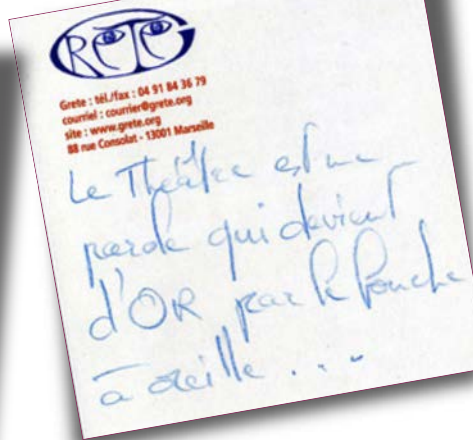 GRETE
Grete : tél./fax : 04 91 84 36 79
courriel : courrier@grete.org
site : www.grete.org
88 rue Consolat - 13001 Marseille
Le Théâtre est une
parole qui devient
d'OR par le bouche
à oreille . . .